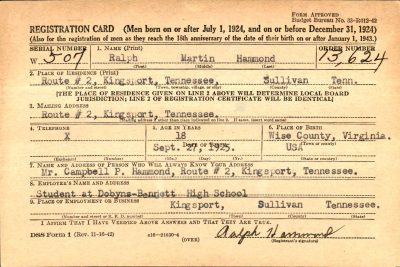 FORM APPROVED
Budget Bureau No. 33-R012-42
REGISTRATION CARD (Men born on or after July 1, 1924, and on or before December 31, 1924)
(Also for the registration of men as they reach the 18th anniversary of the date of their birth on or after January 1, 1943.)
SERIAL NUMBER 1. NAME (Print) ORDER NUMBER
W 507 Ralph Martin Hammond 13,624
(First) (Middle) (Last)
2. PLACE OF RESIDENCE (Print)
Route # 2, Kingsport, Tennessee, Sullivan Tenn.
(Number and street) (Town, township, village, or city) (County) (State)
[THE PLACE OF RESIDENCE GIVEN ON LINE 2 ABOVE WILL DETERMINE LOCAL BOARD
JURISDICTION; LINE 2 OF REGISTRATION CERTIFICATE WILL BE IDENTICAL]
3. MAILING ADDRESS
Route # 2, Kingsport, Tennessee.
4. TELEPHONE 5. AGE IN YEARS 6. PLACE OF BIRTH
X 18 Wise County, Virginia.
DATE OF BIRTH
Sept. 27, 1925. USA
(Exchange) (Number) (Mo.) (Day) (Yr.) (State or country)
7. NAME AND ADDRESS OF PERSON WHO WILL ALWAYS KNOW YOUR ADDRESS
Mr. Campbell P. Hammond, Route # 2, Kingsport, Tennessee.
8. EMPLOYER'S NAME AND ADDRESS
Student at Dobyns-Bennett High School
9. PLACE OF EMPLOYMENT OR BUSINESS
Kingsport, Sullivan Tennessee.
(Number and street or R. F. D. number) (Town) (County) (State)
I AFFIRM THAT I HAVE VERIFIED ABOVE ANSWERS AND THAT THEY ARE TRUE.
DSS Form 1 (Rev. 11-16-42) (OVER) Ralph Hammond
(Registrant's signature)